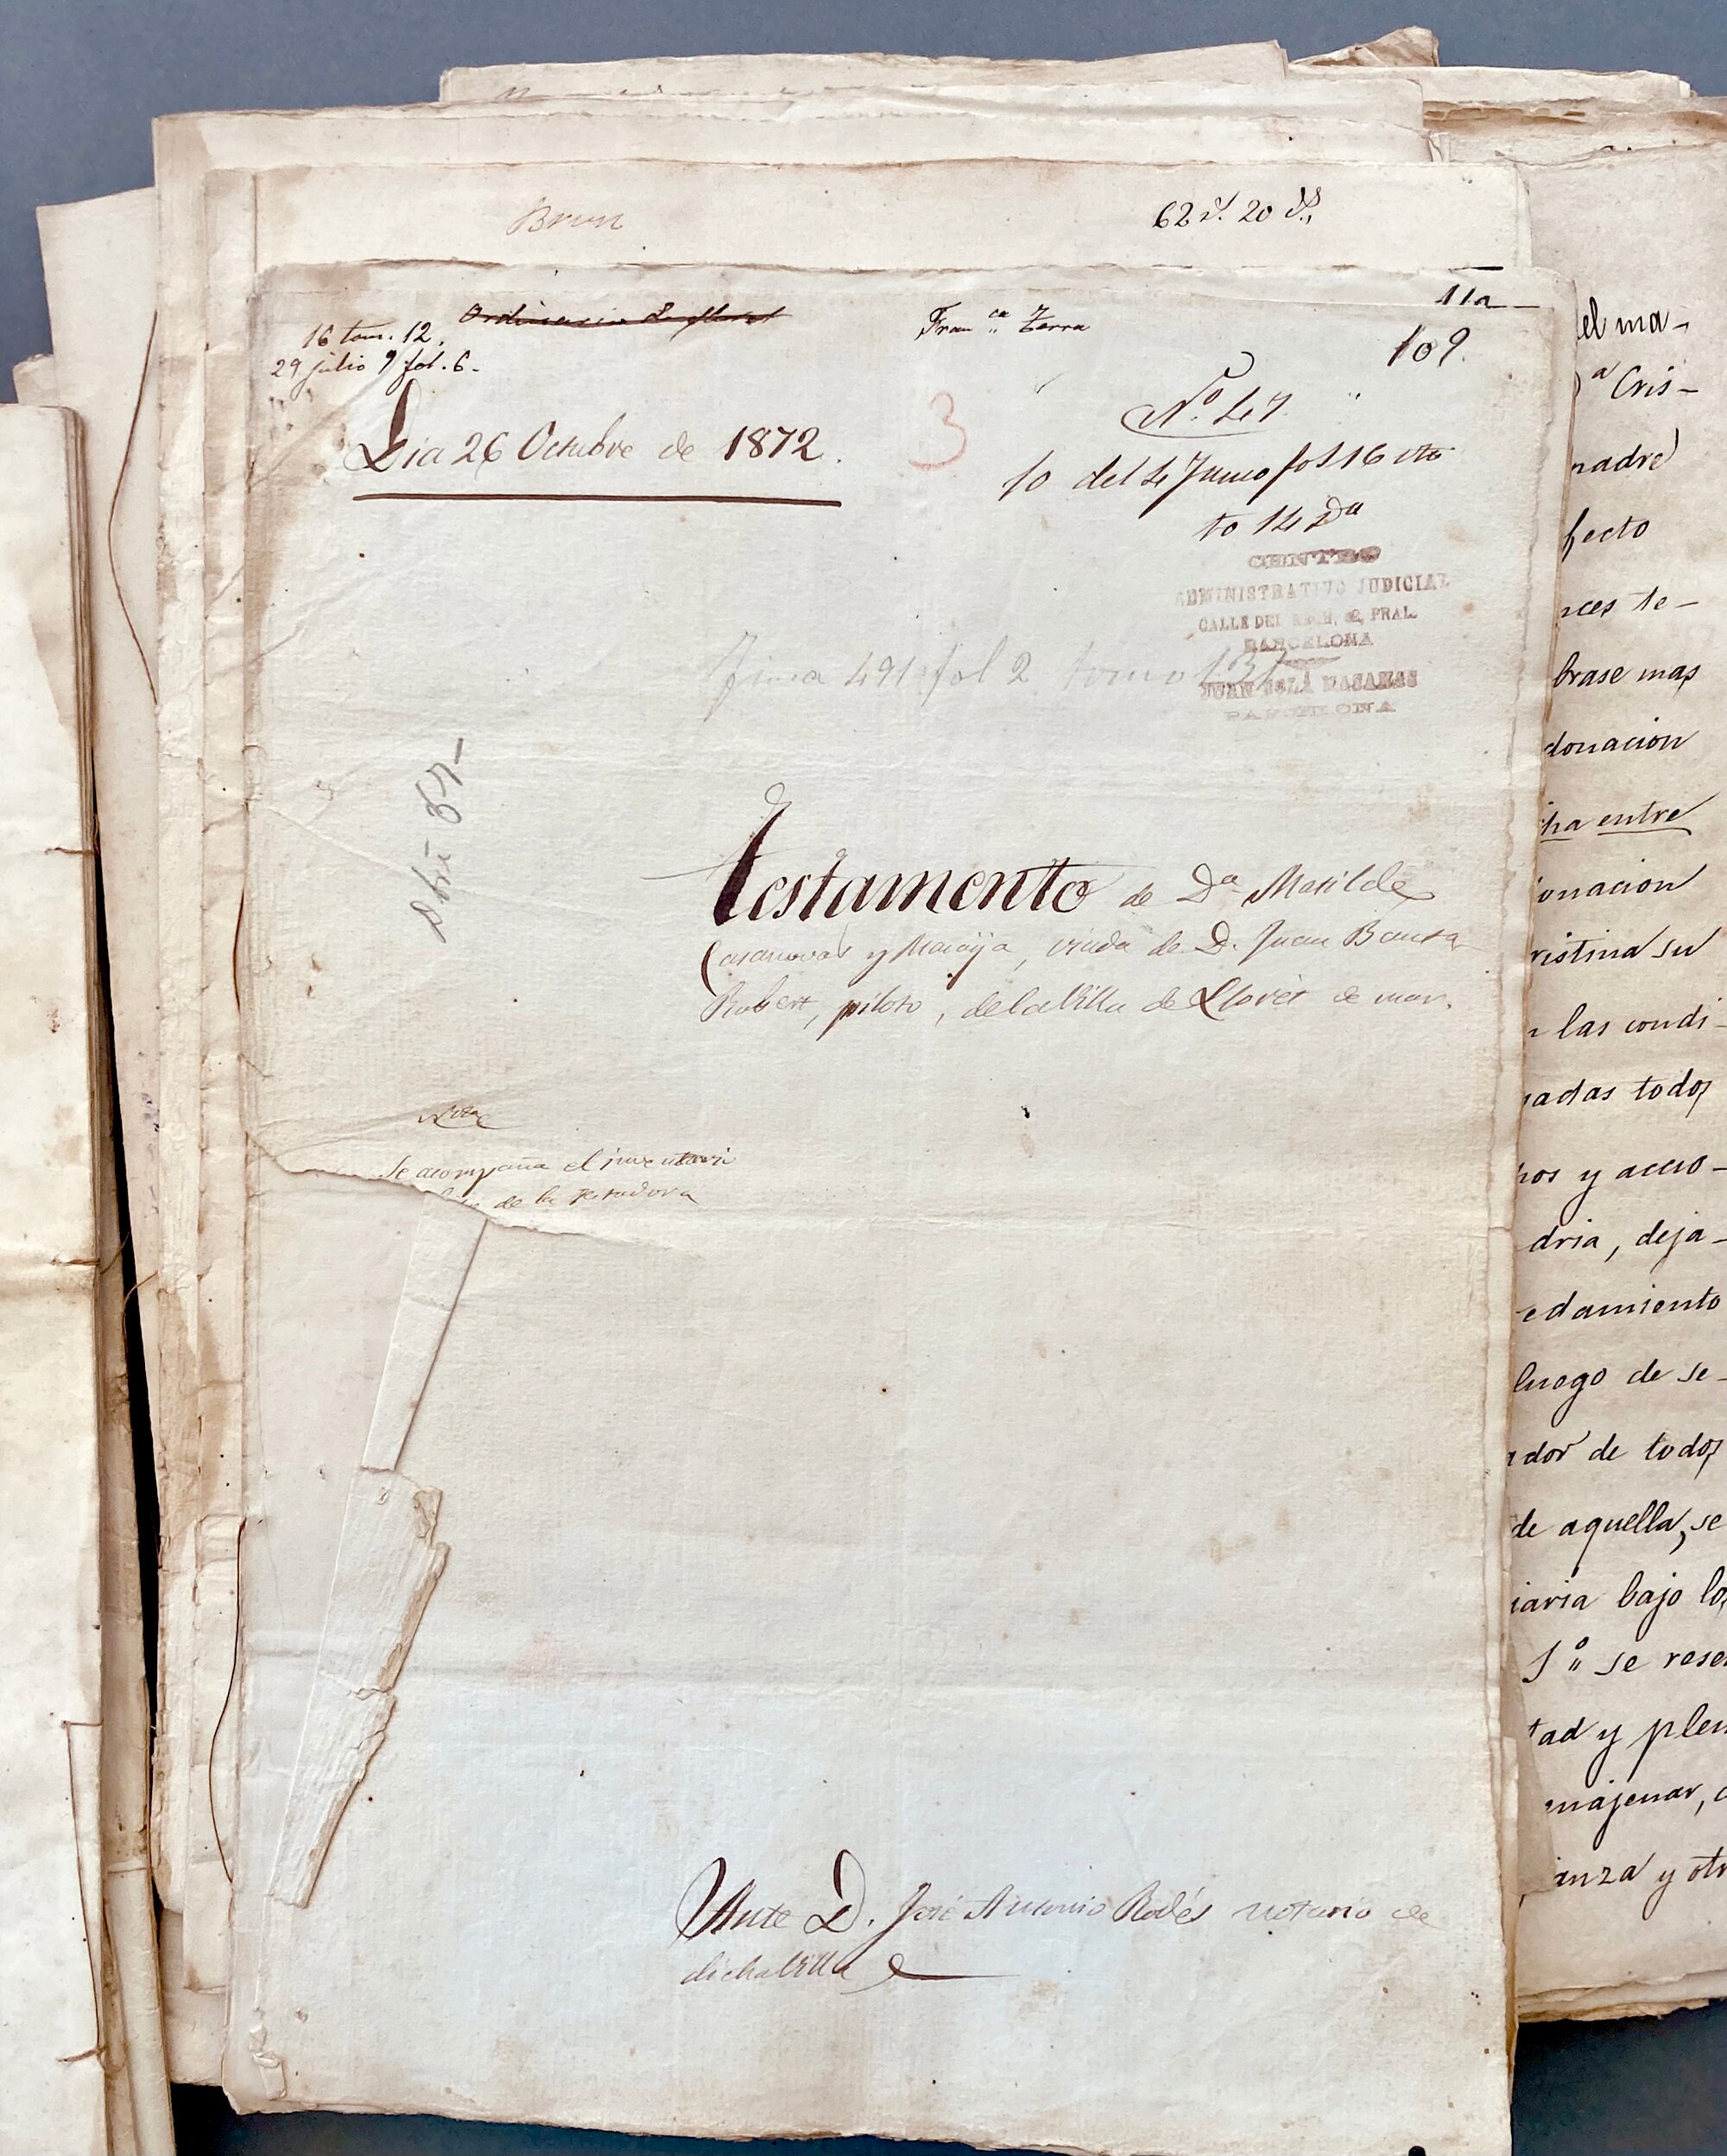 Brun
62 20
Fran.ca Terra
11a
16 tom. 12.
29 julio 9 fol. 6.
109.
Nº 47
Dia 26 Octubre de 1872.
3
10 del 47 fol 16 vto
to 14
CENTRO
ADMINISTRATIVO JUDICIAL
CALLE DEL PRAL.
BARCELONA
finca 491 fol 2 tomo
JUAN SOLÁ
BARCELONA
Testamento de Dª Matilde
Casanovas y Macyá, viuda de D. Juan Bauta
Robert, piloto, de la Villa de Lloret de mar.
Nota
Se acompaña el inventari
de la testadora
Ante D. José Antonio Rodés notario de
dicha Villa
el ma-
ª Cris-
madre
fecto
nces te-
brase mas
donacion
ha entre
onacion
ristina su
las condi-
nadas todos
hos y accio-
dria, deja-
edamiento
luego de se-
ador de todos
de aquella, se
iaria bajo los
1º se reser
tad y plen
enajenar,
anza y otr